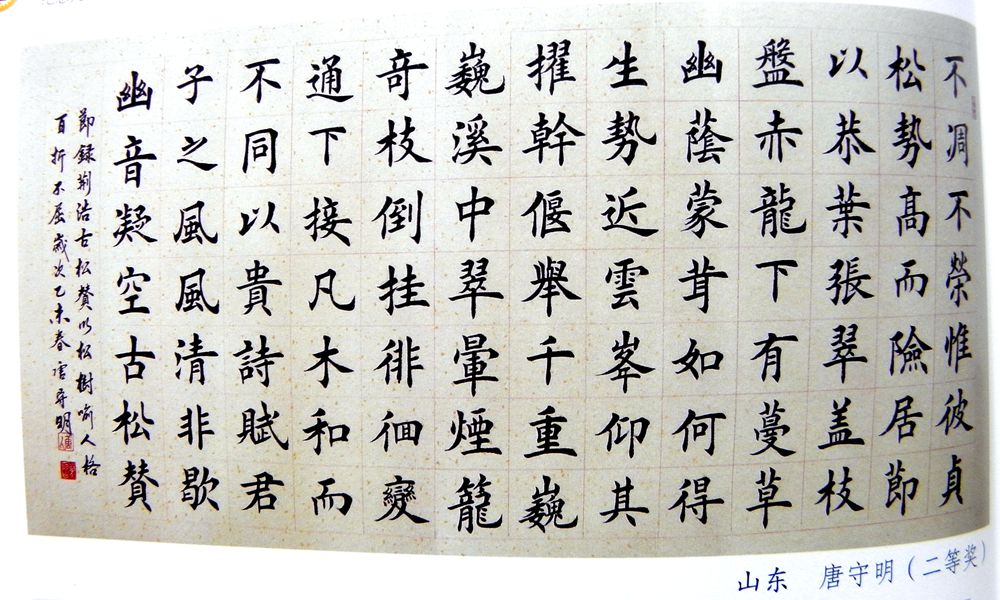 不凋不榮惟彼貞
松勢高而險居節
以恭葉張翠盖枝
盤赤龍下有蔓草
幽蔭蒙茸如何得
生勢近雲峯仰其
擢幹偃舉千重巍
巍溪中翠暈煙籠
奇枝倒挂徘徊變
通下接凡木和而
不同以貴詩賦君
子之風風清非歇
幽音凝空古松贊
節録荆浩古松贊以松樹喻人格
百折不屈歲次乙未春唐守明
山东 唐守明(二等奖)